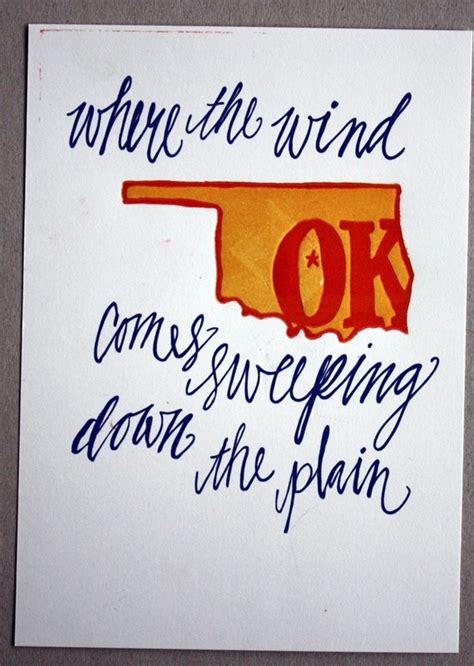 where the wind
OK
comes sweeping
down the plain